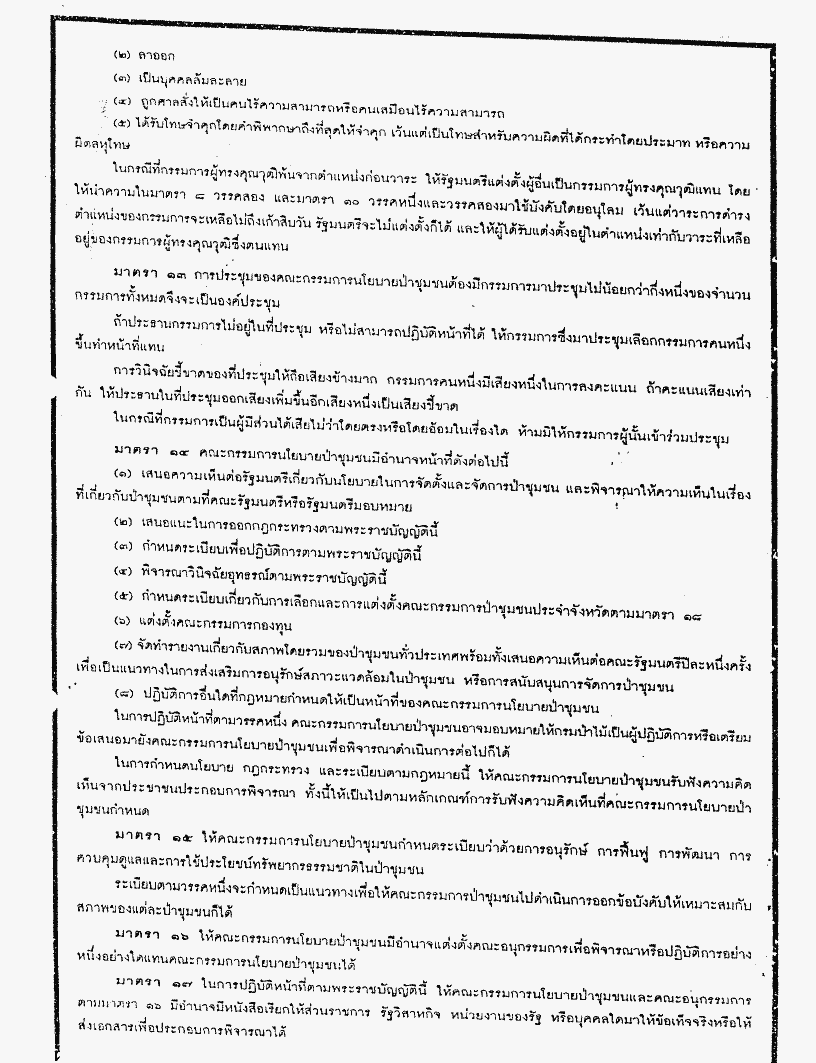 (๒) ลาออก
(๓) เป็นบุคคลล้มละลาย
(๔) ถูกศาลสั่งให้เป็นคนไร้ความสามารถหรือคนเสมือนไร้ความสามารถ
(๕) ได้รับโทษจำคุกโดยคำพิพากษาถึงที่สุดให้จำคุก เว้นแต่เป็นโทษสำหรับความผิดที่ได้กระทำโดยประมาท หรือความ
ผิดลหุโทษ
ในกรณีที่กรรมการผู้ทรงคุณวุฒิพ้นจากตำแหน่งก่อนวาระ ให้รัฐมนตรีแต่งตั้งผู้อื่นเป็นกรรมการผู้ทรงคุณวุฒิแทน โดย
ให้นำความในมาตรา ๘ วรรคสอง และมาตรา ๑๐ วรรคหนึ่งและวรรคสองมาใช้บังคับโดยอนุโลม เว้นแต่วาระการดำรง
ตำแหน่งของกรรมการจะเหลือไม่ถึงเก้าสิบวัน รัฐมนตรีจะไม่แต่งตั้งก็ได้ และให้ผู้ได้รับแต่งตั้งอยู่ในตำแหน่งเท่ากับวาระที่เหลือ
อยู่ของกรรมการผู้ทรงคุณวุฒิซึ่งตนแทน
มาตรา ๑๓ การประชุมของคณะกรรมการนโยบายป่าชุมชนต้องมีกรรมการมาประชุมไม่น้อยกว่ากึ่งหนึ่งของจำนวน
กรรมการทั้งหมดจึงจะเป็นองค์ประชุม
ถ้าประธานกรรมการไม่อยู่ในที่ประชุม หรือไม่สามารถปฏิบัติหน้าที่ได้ ให้กรรมการซึ่งมาประชุมเลือกกรรมการคนหนึ่ง
ขึ้นทำหน้าที่แทน
การวินิจฉัยชี้ขาดของที่ประชุมให้ถือเสียงข้างมาก กรรมการคนหนึ่งมีเสียงหนึ่งในการลงคะแนน ถ้าคะแนนเสียงเท่า
กัน ให้ประธานในที่ประชุมออกเสียงเพิ่มขึ้นอีกเสียงหนึ่งเป็นเสียงชี้ขาด
ในกรณีที่กรรมการเป็นผู้มีส่วนได้เสียไม่ว่าโดยตรงหรือโดยอ้อมในเรื่องใด ห้ามมิให้กรรมการผู้นั้นเข้าร่วมประชุม
มาตรา ๑๔ คณะกรรมการนโยบายป่าชุมชนมีอำนาจหน้าที่ดังต่อไปนี้
(๑) เสนอความเห็นต่อรัฐมนตรีเกี่ยวกับนโยบายในการจัดตั้งและจัดการป่าชุมชน และพิจารณาให้ความเห็นในเรื่อง
ที่เกี่ยวกับป่าชุมชนตามที่คณะรัฐมนตรีหรือรัฐมนตรีมอบหมาย
(๒) เสนอแนะในการออกกฎกระทรวงตามพระราชบัญญัตินี้
(๓) กำหนดระเบียบเพื่อปฏิบัติการตามพระราชบัญญัตินี้
(๔) พิจารณาวินิจฉัยอุทธรณ์ตามพระราชบัญญัตินี้
(๕) กำหนดระเบียบเกี่ยวกับการเลือกและการแต่งตั้งคณะกรรมการป่าชุมชนประจำจังหวัดตามมาตรา ๑๘
(๖) แต่งตั้งคณะกรรมการกองทุน
(๗) จัดทำรายงานเกี่ยวกับสภาพโดยรวมของป่าชุมชนทั่วประเทศพร้อมทั้งเสนอความเห็นต่อคณะรัฐมนตรีปีละหนึ่งครั้ง
เพื่อเป็นแนวทางในการส่งเสริมการอนุรักษ์สภาวะแวดล้อมในป่าชุมชน หรือการสนับสนุนการจัดการป่าชุมชน
(๘) ปฏิบัติการอื่นใดที่กฎหมายกำหนดให้เป็นหน้าที่ของคณะกรรมการนโยบายป่าชุมชน
ในการปฏิบัติหน้าที่ตามวรรคหนึ่ง คณะกรรมการนโยบายป่าชุมชนอาจมอบหมายให้กรมป่าไม้เป็นผู้ปฏิบัติการหรือเตรียม
ข้อเสนอมายังคณะกรรมการนโยบายป่าชุมชนเพื่อพิจารณาดำเนินการต่อไปก็ได้
ในการกำหนดนโยบาย กฎกระทรวง และระเบียบตามกฎหมายนี้ ให้คณะกรรมการนโยบายป่าชุมชนรับฟังความคิด
เห็นจากประชาชนประกอบการพิจารณา ทั้งนี้ให้เป็นไปตามหลักเกณฑ์การรับฟังความคิดเห็นที่คณะกรรมการนโยบายป่า
ชุมชนกำหนด
มาตรา ๑๕ ให้คณะกรรมการนโยบายป่าชุมชนกำหนดระเบียบว่าด้วยการอนุรักษ์ การฟื้นฟู การพัฒนา การ
ควบคุมดูแลและการใช้ประโยชน์ทรัพยากรธรรมชาติในป่าชุมชน
ระเบียบตามวรรคหนึ่งจะกำหนดเป็นแนวทางเพื่อให้คณะกรรมการป่าชุมชนไปดำเนินการออกข้อบังคับให้เหมาะสมกับ
สภาพของแต่ละป่าชุมชนก็ได้
มาตรา ๑๖ ให้คณะกรรมการนโยบายป่าชุมชนมีอำนาจแต่งตั้งคณะอนุกรรมการเพื่อพิจารณาหรือปฏิบัติการอย่าง
หนึ่งอย่างใดแทนคณะกรรมการนโยบายป่าชุมชนได้
มาตรา ๑๗ ในการปฏิบัติหน้าที่ตามพระราชบัญญัตินี้ ให้คณะกรรมการนโยบายป่าชุมชนและคณะอนุกรรมการ
ตามมาตรา ๑๖ มีอำนาจมีหนังสือเรียกให้ส่วนราชการ รัฐวิสาหกิจ หน่วยงานของรัฐ หรือบุคคลใดมาให้ข้อเท็จจริงหรือให้
ส่งเอกสารเพื่อประกอบการพิจารณาได้